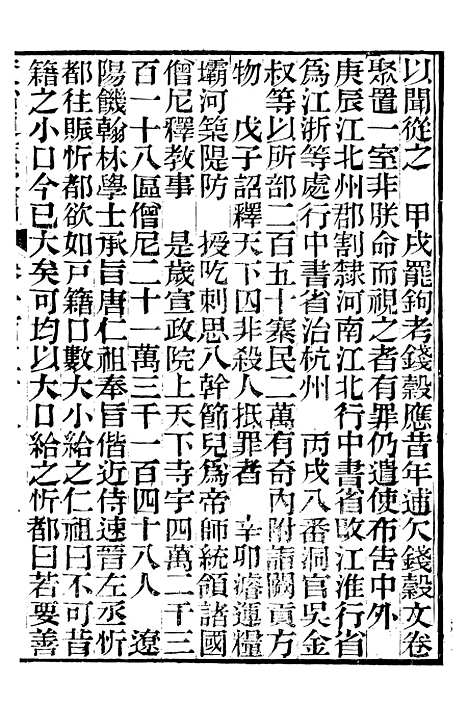 以聞從之　甲戌罷鉤考錢穀應昔年逋欠錢穀文卷
聚置一室非朕命而視之者有罪仍遣使布告中外
庚辰江北州郡割隸河南江北行中書省改江淮行省
爲江浙等處行中書省治杭州　丙戌八番洞官吳金
叔等以所部二百五十寨民二萬有奇內附詣闕貢方
物　戊子詔釋天下囚非殺人抵罪者　辛卯濬運糧
壩河築隄防　授吃剌思八幹節兒爲帝師統領諸國
僧尼釋教事　是歲宣政院上天下寺宇四萬二千三
百一十八區僧尼二十一萬三千一百四十八人　遼
陽饑翰林學士承旨唐仁祖奉旨偕近侍速晉左丞忻
都往賑忻都欲如戸籍口數大小給之仁祖曰不可昔
籍之小口今已大矣可均以大口給之忻都曰若要善